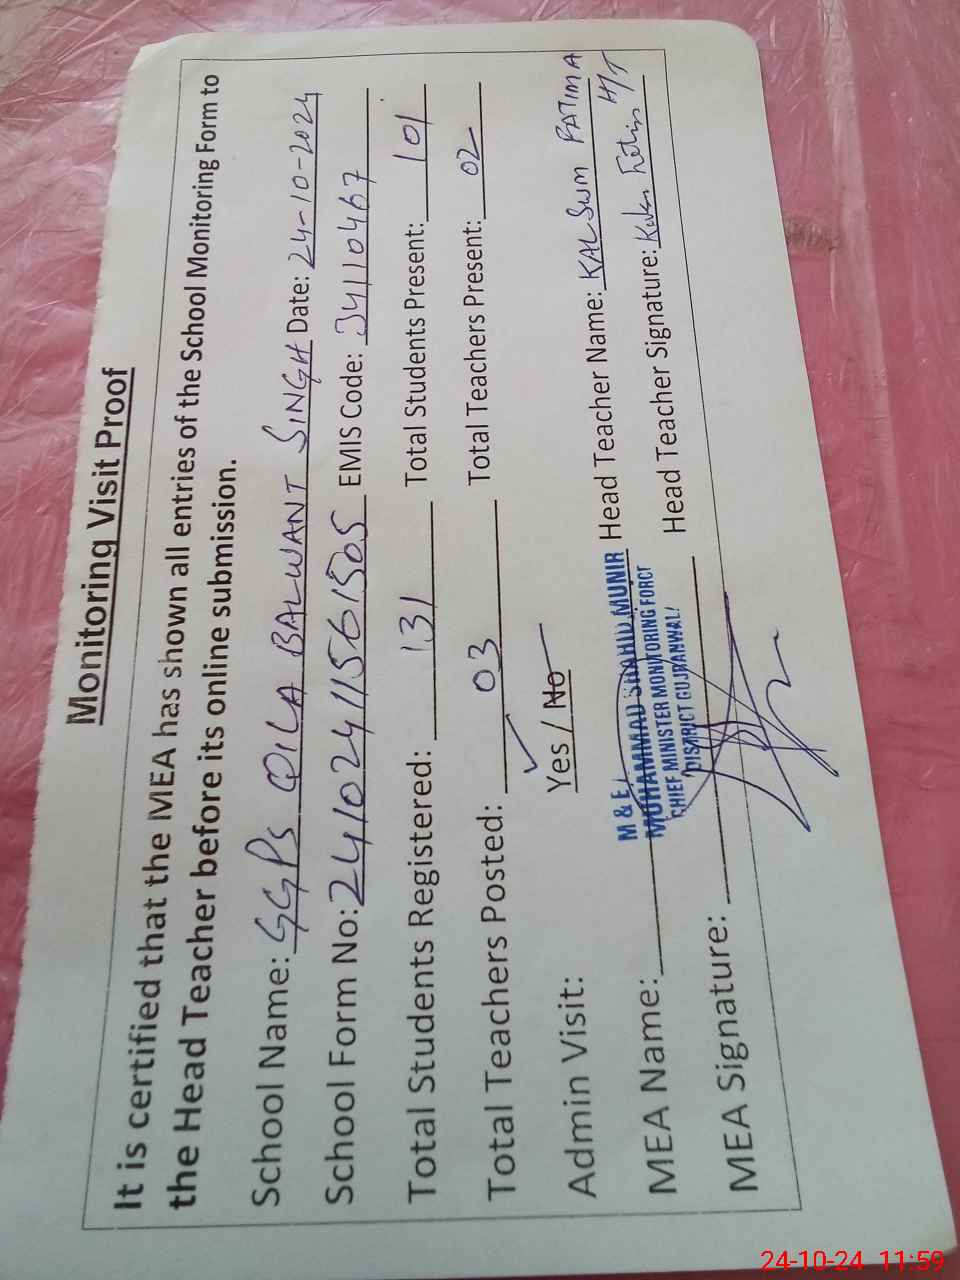 Monitoring Visit Proof
It is certified that the MEA has shown all entries of the School Monitoring Form to
the Head Teacher before its online submission.
School Name: GGPS QILA BALWANT SINGH Date: 24-10-2024
School Form No: 24102411561505 EMIS Code: 34110467
Total Students Registered: 131 Total Students Present: 101
Total Teachers Posted: 03 Total Teachers Present: 02
Admin Visit: Yes / No
MEA Name: Head Teacher Name: KALSUM FATIMA
M & E
MUHAMMAD SHAHID MUNIR
CHIEF MINISTER MONITORING FORCE
DISTRICT GUJRANWALA
MEA Signature: Head Teacher Signature: H/T
24-10-24 11:59